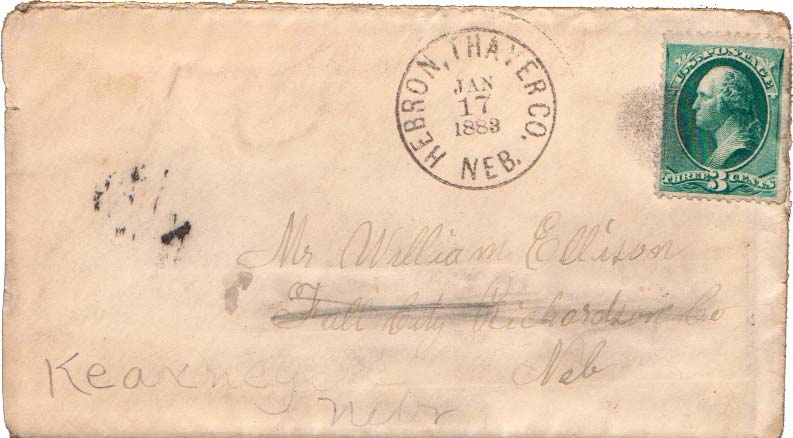 HEBRON, THAYER CO.
JAN
17
1883
NEB.
U.S. POSTAGE
THREE 3 CENTS
Mr William Ellison
Fall City Richardson Co
Neb
Kearney
Nebr